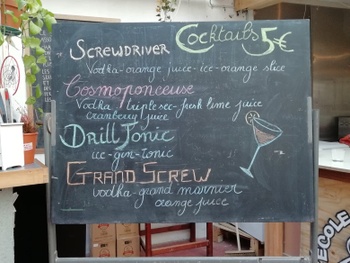 Cocktails 5€
SCREWDRIVER
Vodka-orange juice-ice-orange slice
Cosmoponceuse
Vodka triple sec-fresh lime juice
cranberry juice
Drill Tonic
ice-gin-tonic
GRAND SCREW
vodka-grand marnier
orange juice
ECOLE